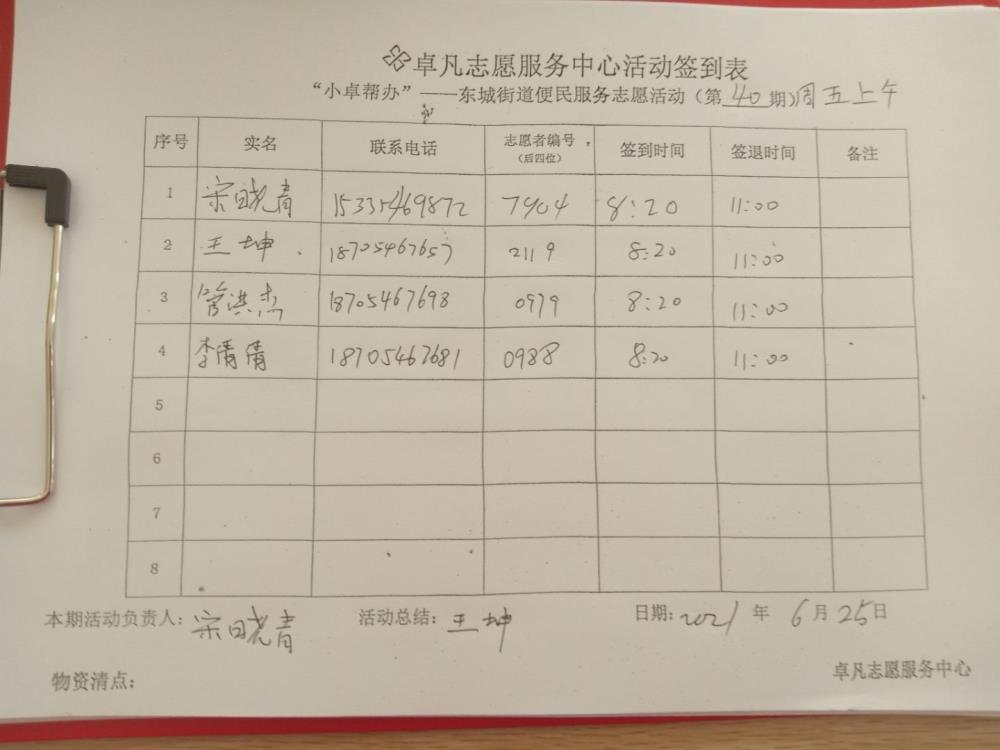 卓凡志愿服务中心活动签到表
“小卓帮办”——东城街道便民服务志愿活动（第40期）周五上午
序号 实名 联系电话 志愿者编号（后四位） 签到时间 签退时间 备注
1 宋晓青 15335469872 7904 8:20 11:00
2 王坤 18705467657 2119 8:20 11:00
3 管洪杰 18705467698 0979 8:20 11:00
4 李倩倩 18705467681 0988 8:20 11:00
5
6
7
8
本期活动负责人：宋晓青 活动总结：王坤 日期：2021年6月25日
物资清点： 卓凡志愿服务中心